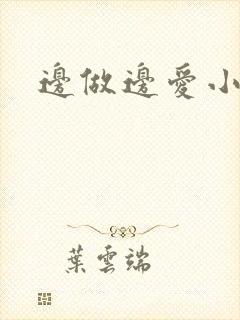 邊做邊愛小
葉雲端